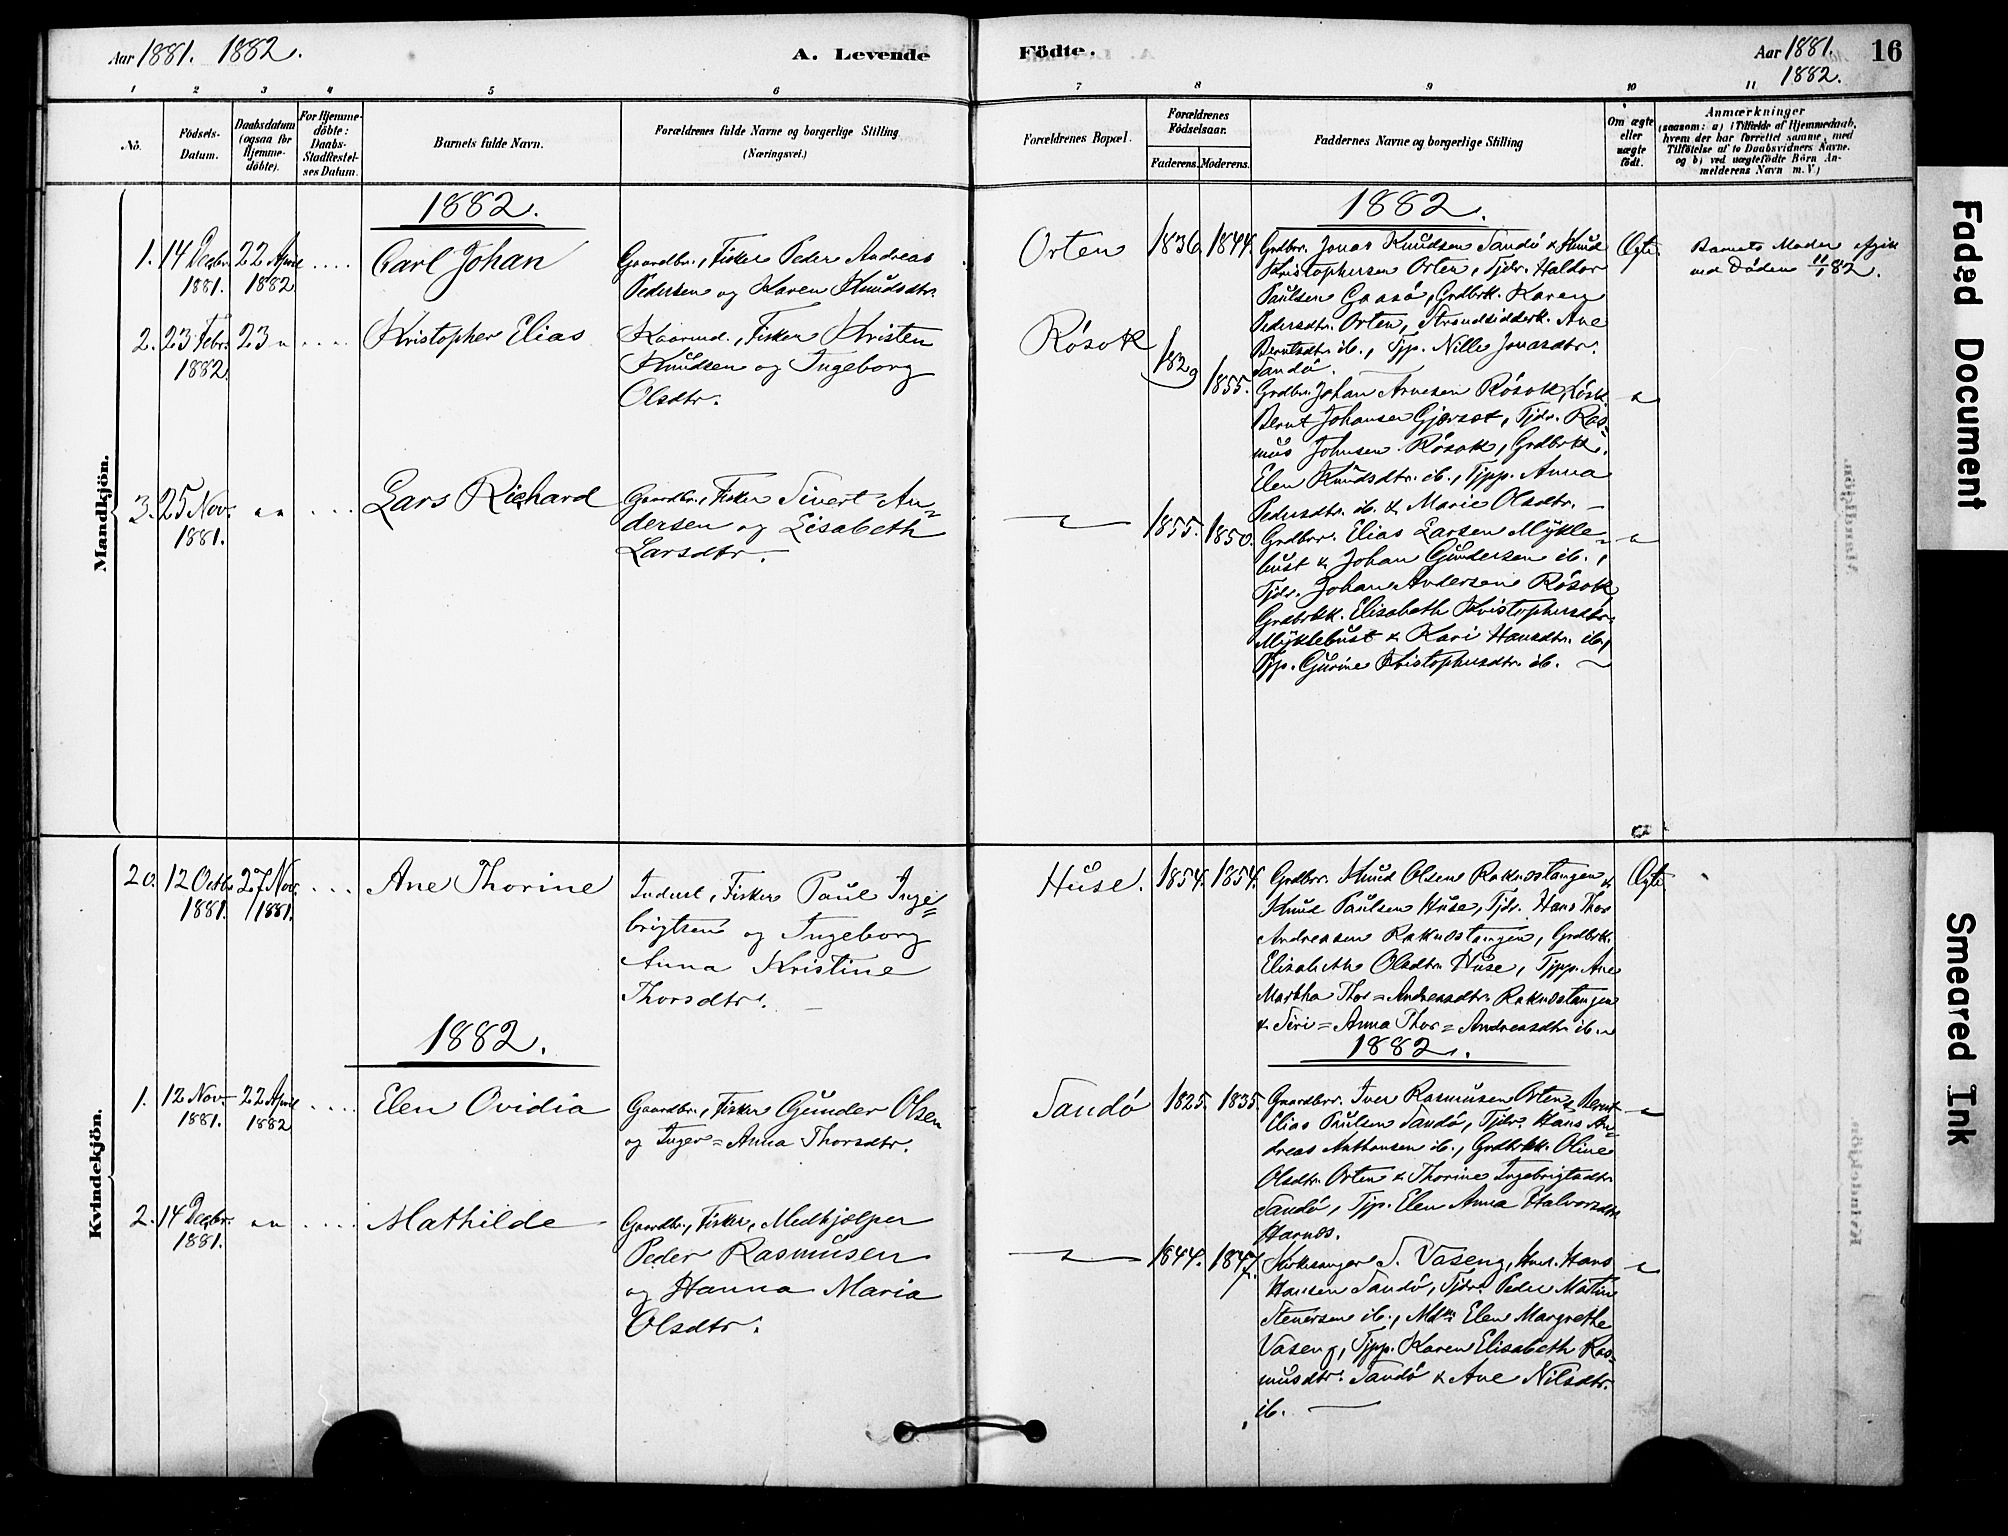 Aar 1881. 1882.
A. Levende
Födte.
Aar 1881.
1882.
16
1
2
3
4
5
6
7
8
9
10
11
No.
Födsels-
Datum.
Daabsdatum
(ogsaa for
Hjemme-
döbte).
For Hjemme-
döbte:
Daabs-
Stadfæstel-
ses Datum.
Barnets fulde Navn.
Forældrenes fulde Navne og borgerlige Stilling
(Næringsvei.)
Forældrenes Bopæl.
Forældrenes
Födselsaar.
Faderens.
Moderens.
Faddernes Navne og borgerlige Stilling
Om ægte
eller
uægte
födt.
Anmærkninger
(saasom: a) i Tilfælde af Hjemmedaab,
hvem der har forrettet samme, med
Tilföielse af to Daabsvidners Navne.
og b) ved uægtefödte Börn An-
melderens Navn m. V.)
Mandkjön.
1882.
1882.
1. 14 Decbr. 1881. 22 April 1882 ....
Carl Johan
Gaardbr., Fisker Peder Andreas
Pedersen og Karen Knudsdtr.
Orten
1836. 1844.
Grdbr. Jonas Knudsen Sandö & Knud
Kristophersen Orten, Tjdr. Haldor
Paulsen Gaasö, Grdbrk. Karen
Pedersdtr. Orten, Strandsidderk. Ane
Berntsdtr. ib., Tjp. Nille Jonasdtr.
Sandö.
Ægte.
Barnets Moder afgik
ved Döden 11/1 82.
2. 23 Febr. 1882. 23 " ....
Kristopher Elias
Kaarmd., Fisker Kristen
Knudsen og Ingeborg
Olsdtr.
Rösok
1829 1855.
Grdbr. Johan Arnesen Rösok,
Bernt Johansen Gjerset, Tjdr. Ras=
mus Johnsen Rösok, Grdbrk.
Elen Knudsdtr. ib., Tjpp. Anna
Pedersdtr. ib. & Marie Olsdtr. —
3. 25 Nov. 1881. " " ....
Lars Richard
Gaardbr., Fisker Sivert An=
dersen og Lisabeth
Larsdtr. —
1855. 1850.
Grdbr. Elias Larsen Mykle=
bust & Johan Gundersen ib.,
Tjdr. Johan Andersen Rösok,
Grdbrkk. Elisabeth Kristophersdtr.
Myklebust & Kari Hansdtr. ib.,
Tjp. Gurine Kristophersdtr. ib. —
Kvindekjön.
20. 12 Octb. 1881. 27 Nov. 1881. ....
Ane Thorine
Inderst, Fisker Paul Inge=
brigtsen og Ingeborg
Anna Kristine
Thorsdtr. —
Huse.
1854. 1854.
Grdbr. Knud Olsen Raknestangen &
Knud Paulsen Huse, Tjdr. Hans Thor
Andreasen Raknestangen, Grdbrk.
Elisabeth Olsdtr. Huse, Tjpp. Ane
Martha Thor=Andreasdtr. Raknestangen
& Siri=Anna Thor=Andreasdtr. ib. —
Ægte
1882.
1882.
1. 12 Nov. 1881. 22 April 1882 ....
Elen Ovidia
Gaardbr., Fisker Gunder Olsen
og Inger=Anna Thorsdtr.
Sandö
1825. 1835.
Gaardbrr. Iver Rasmusen Orten & Bernt
Elias Paulsen Sandö, Tjdr. Hans An=
dreas Anthonsen ib., Grdbrkk. Oline
Olsdtr. Orten & Thorine Ingebrigtsdtr.
Sandö, Tjp. Elen Anna Halvorsdtr.
Harnes.
2. 14 Decbr. 1881. " " ....
Mathilde
Gaardbr., Fisker, Medhjælper
Peder Rasmusen
og Hanna Maria
Olsdtr.
1844. 1847.
Kirkesanger S. Vaseng, Hans
Hansen Sandö, Tjdr. Peder Martin
Stenersen ib., Mdm. Elen Margrethe
Vaseng, Tjpp. Karen Elisabeth Ras=
musdtr. Sandö & Ane Nilsdtr.
ib. —
Faded Document
Smeared Ink